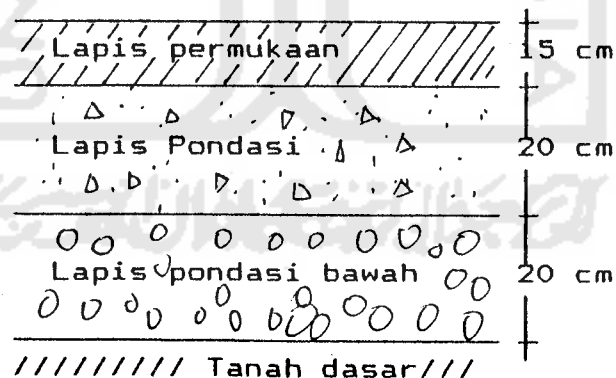 Lapis permukaan 15 cm
Lapis Pondasi 20 cm
Lapis pondasi bawah 20 cm
Tanah dasar